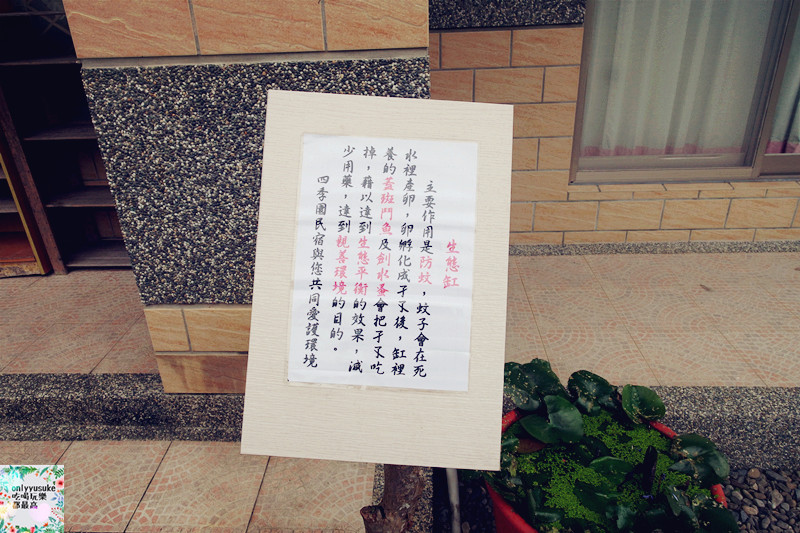 生態缸
主要作用是防蚊，蚊子會在死
水裡產卵，卵孵化成孑孓後，缸裡
養的蓋斑鬥魚及劍水蚤會把孑孓吃
掉，藉以達到生態平衡的效果，減
少用藥，達到親善環境的目的。
四季圃民宿與您共同愛護環境
onlyyusuke
吃喝玩樂
部最高